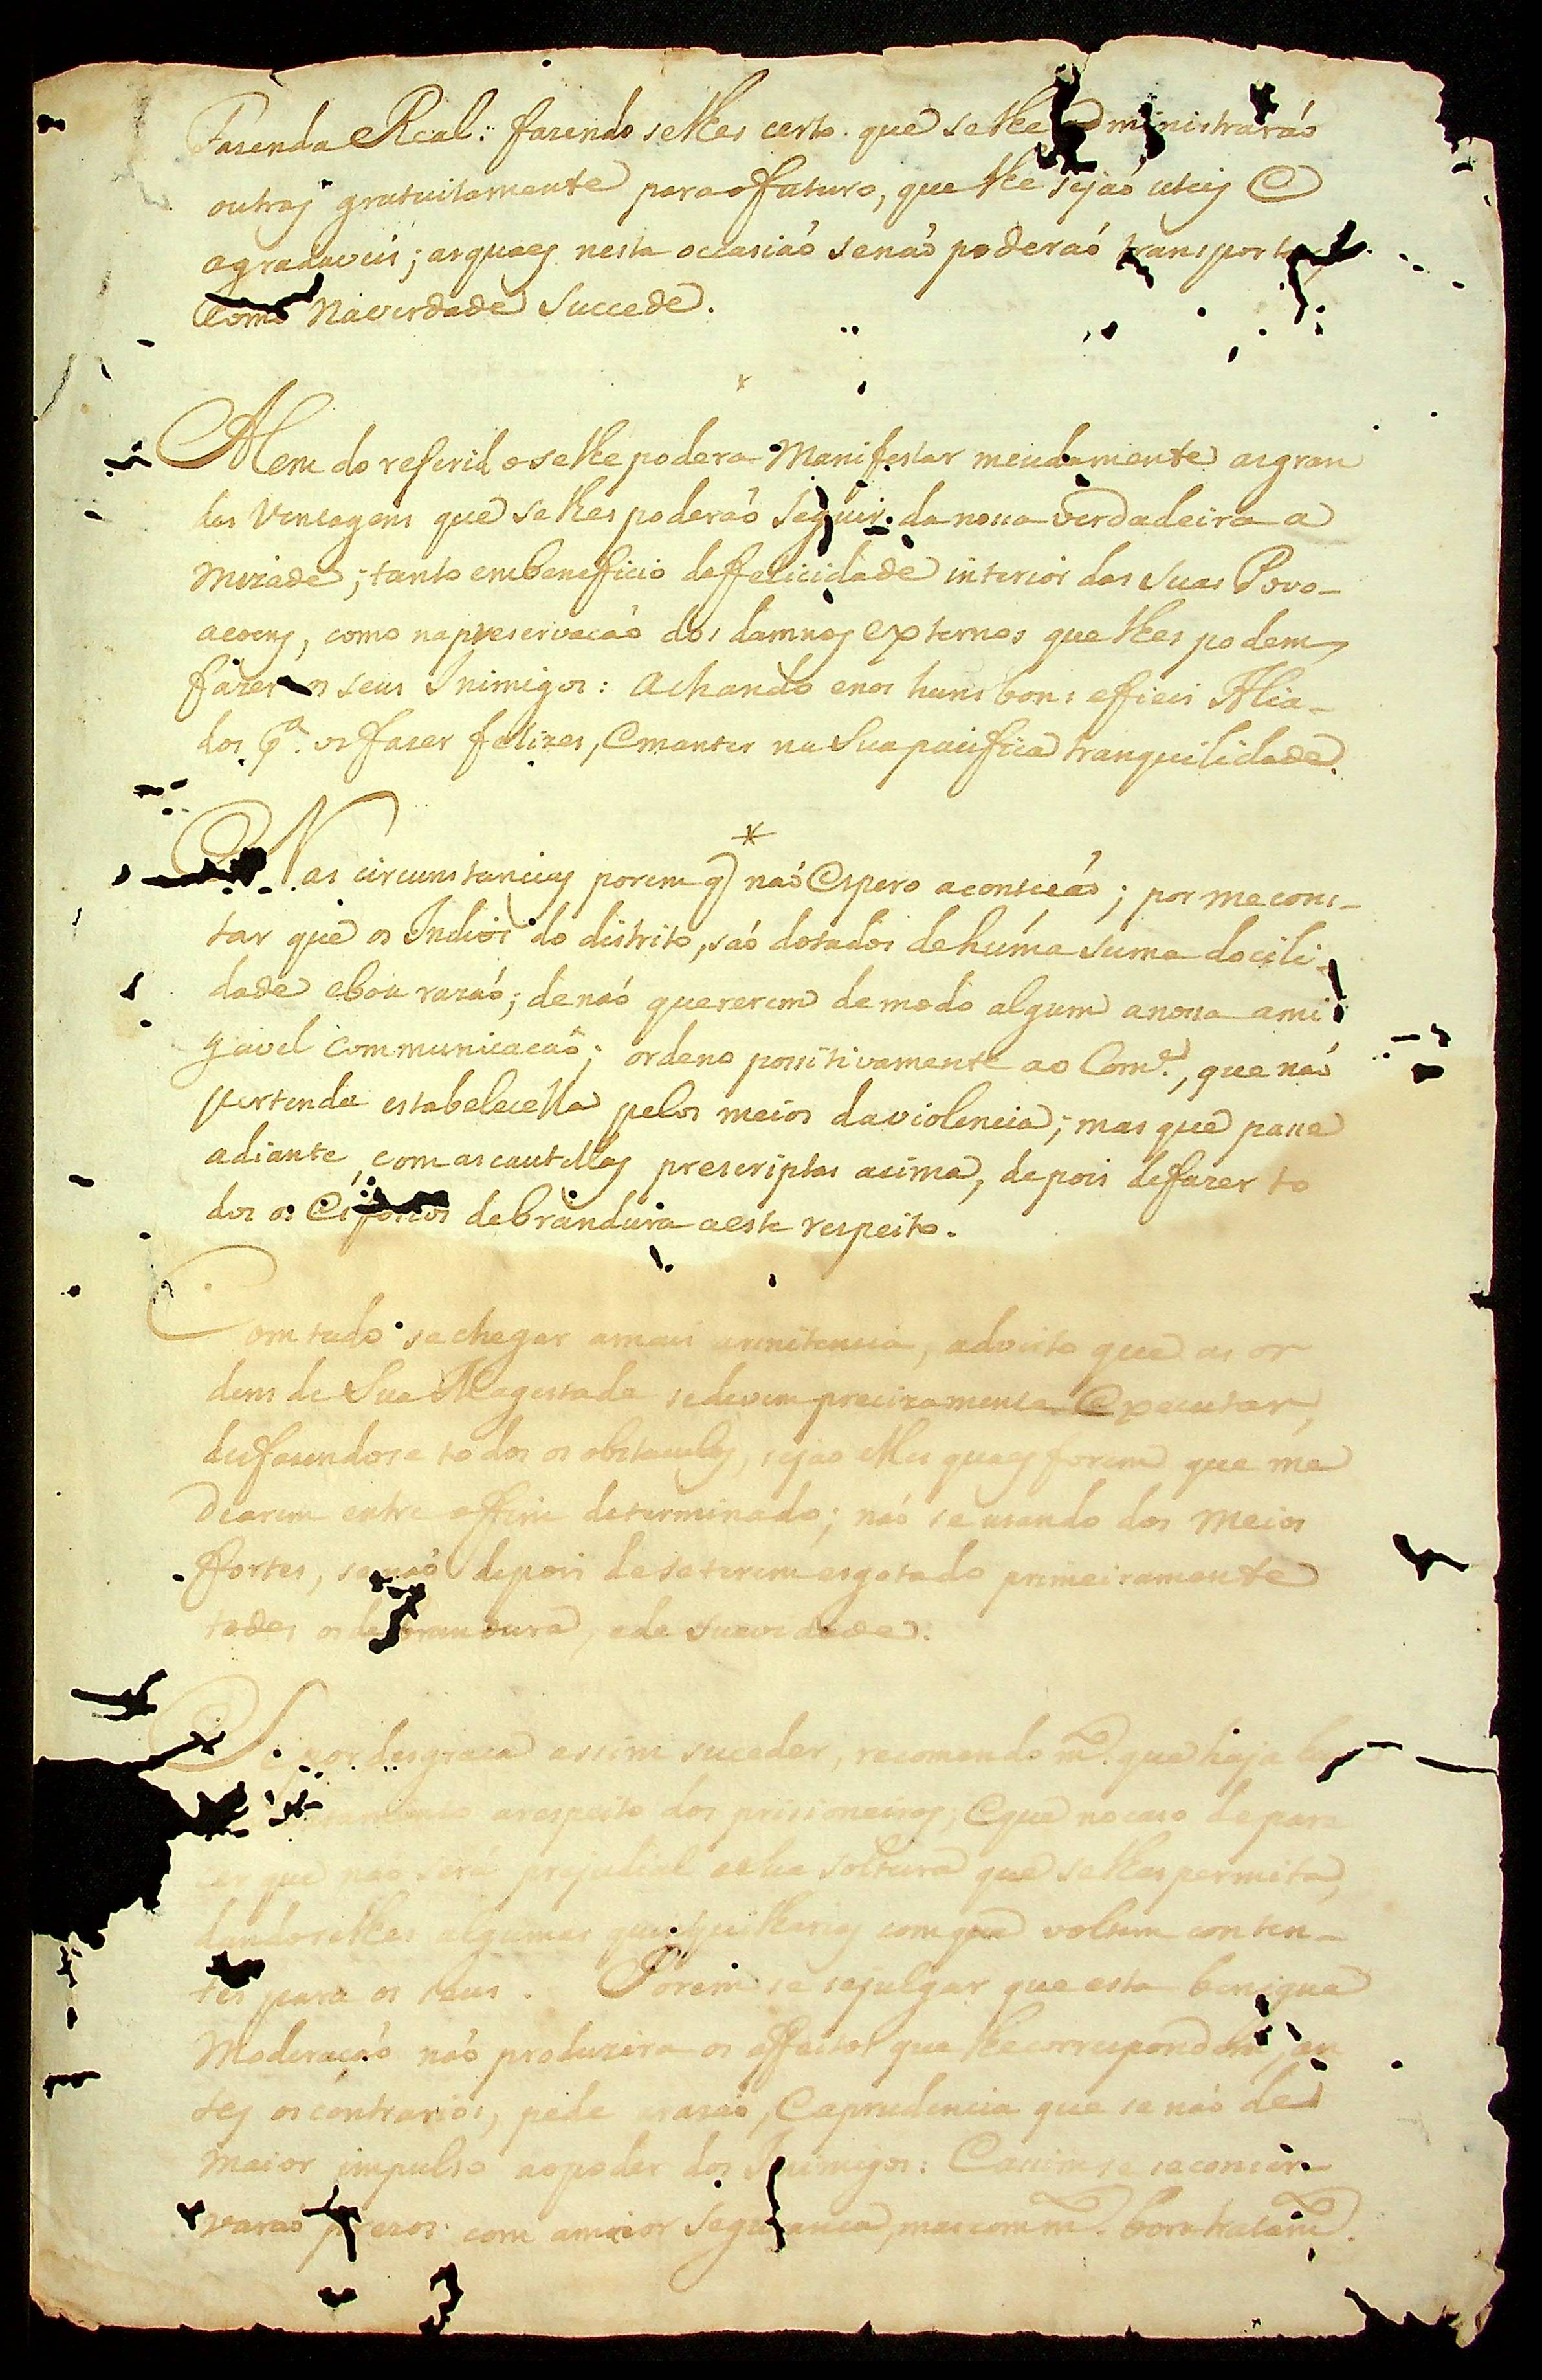 Fasenda Real: fasendo selhes certo que selhe administraráó
outras gratuitamente para o futuro, que lhe sejaó uteis e
agradaveis; as quaes nesta occasiaó se naó poderaó transportar,
como na verdade succede.
Alem do referido se lhe podera manifestar meudamente as gran
des ventagens que se lhes poderaó seguir da nossa verdadeira a
mizade; tanto em beneficio da felicidade interior das suas Povo-
acoens, como na preservacaó dos damnos externos que lhes podem
fazer os seus Inimigos: achando enos huns bons e fieis Alia-
dos pª. os faser felizes, e manter na sua pacifica tranquilidade.
Nas circunstancias porem q naó espero aconteráó; por me cons-
tar que os Indios do distrito, saó dotados de húma suma docili-
dade e boa razaó; de naó quererem de modo algum a nossa ami
gavel communicacaó; ordeno possitivamente ao Com.ᵉ, que naó
pertenda estabelecélla pelos meios da violencia; mas que passe
adiante, com as cautellas prescriptas acima, depois de fazer to
dos os esforcos de brandura a este respeito.
Com tudo se chegar a mais renitencia, advirto que as or
dens de Sua Magestade se devem precizamente executar,
desfasendose todos os obstaculos, sejao elles quaes forem que me
dearem entre o ffim determinado; naó se usando dos meios
ffortes, senaó depois de se terem esgotado primeiramente
todos os de brandura, e de suavidade.
Se por desgraca assim suceder, recomendo m.ᵗᵒ que haja
a respeito dos prisioneiros; e que no caso de pare
cer que naó será prejudial a sua soltura que se lhes permita,
dandoselhes algumas quinquilharias com que voltem conten-
tes para os seus. Porem se se julgar que esta benigna
moderacaó naó produzira os effeitos que lhe correspondem, an
tes os contrarios, pede a rasaó, e a prudencia que se naó de
maior impulso ao poder dos Inimigos: e assim se conser
varaó presos com a maior seguranca, mas com m.ᵗᵒ bom tratam.ᵗᵒ